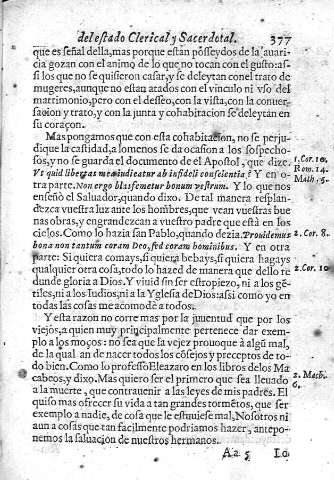 del estado Clerical y Sacerdotal. 377
que es señal della, mas porque estan posseydos de la auari
cia gozan con el animo de lo que no tocan con el gusto: as-
si los que no se quisieron casar, y se deleytan con el trato de
mugeres, aunque no estan atados con el vinculo ni vso del
matrimonio, pero con el desseo, con la vista, con la conuer-
sacion y trato, y con la junta y cohabitacion se deleytan en
su coraçon.
Mas pongamos que con esta cohabitacion, no se perju-
dique la castidad, a lo menos se da ocasion a los sospecho-
sos, y no se guarda el documento de el Apostol, que dize.
Vt quid libertas mea iudicatur ab infideli conscientia? Y en o-
tra parte. Non ergo blasfemetur bonum vestrum. Y lo que nos
enseñò el Saluador, quando dixo. De tal manera resplan-
dezca vuestra luz ante los hombres, que vean vuestras bue
nas obras, y engrandezcan a vuestro padre que està en los
cielos. Como lo hazia san Pablo, quando dezia. Prouidemus
bona non tantum coram Deo, sed coram hominibus. Y en otra
parte: Si quiera comays, si quiera bebays, si quiera hagays
qualquier otra cosa, todo lo hazed de manera que dello re
dunde gloria a Dios. Y viuid sin ser estropieço, ni a los gē-
tiles, ni a los Iudios, ni a la Yglesia de Dios: assi como yo en
todas las cosas me acomodè a todos.
Y esta razon no corre mas por la juuentud que por los
viejos, a quien muy principalmente pertenece dar exem-
plo a los moços: no sea que la vejez prouoque à algũ mal,
de la qual an de nacer todos los cōsejos y preceptos de to
do bien. Como lo professò Eleazaro en los libros de los Ma
cabeos, y dixo. Mas quiero ser el primero que sea lleuado
a la muerte, que contrauenir a las leyes de mis padres. El
quiso mas ofrecer su vida a tan grandes tormētos, que ser
exemplo a nadie, de cosa que le estuuiese mal, Nosotros ni
aun a cosas que tan facilmente podriamos hazer, antepo-
nemos la saluacion de nuestros hermanos.
Aa 5 Lo
1. Cor. 10,
Rom. 14.
Math. 5.
2. Cor. 8.
2. Cor. 10
2. Mach.
6.